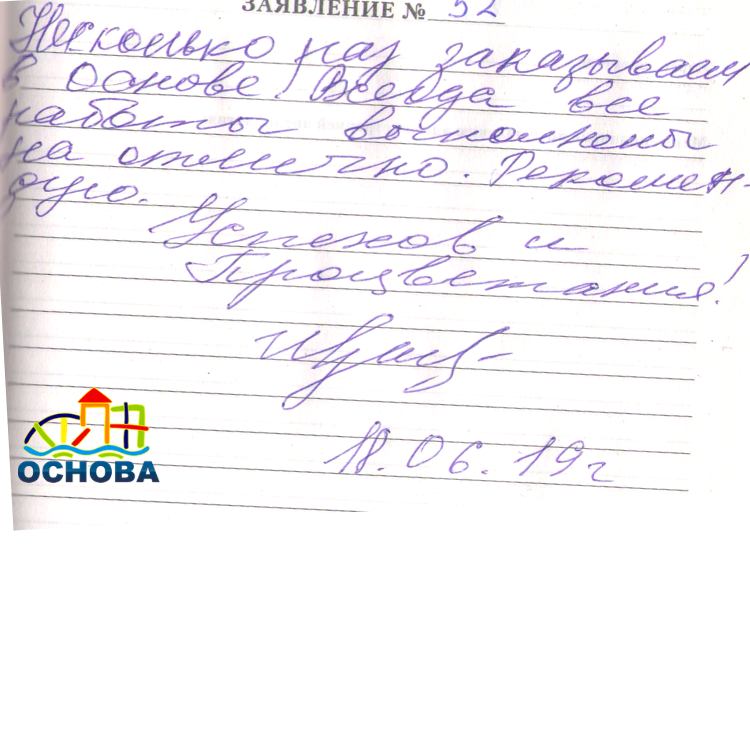 ЗАЯВЛЕНИЕ № 92
Несколько раз заказываем
в Основе! Всегда все
работы выполнены
на отлично. Рекомен-
дую.
Успехов и
Процветания!
18.06.19г
ОСНОВА